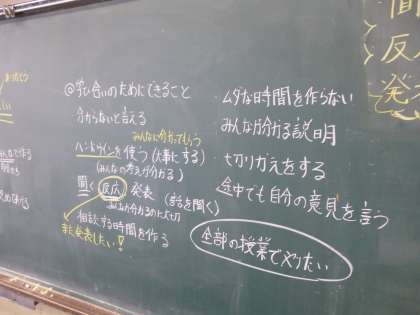 ◎学び合いのためにできること
分からないと言える
みんなに分かってもらう
ハンドサインを使う(大事にする)
(みんなの考えが分かる)
聞く 反応 発表 (話を聞く)
相談する時間を作る
また発表したい!
・ムダな時間を作らない
・みんなが分かる説明
・切りかえをする
・途中でも自分の意見を言う
全部の授業でやりたい
反
発